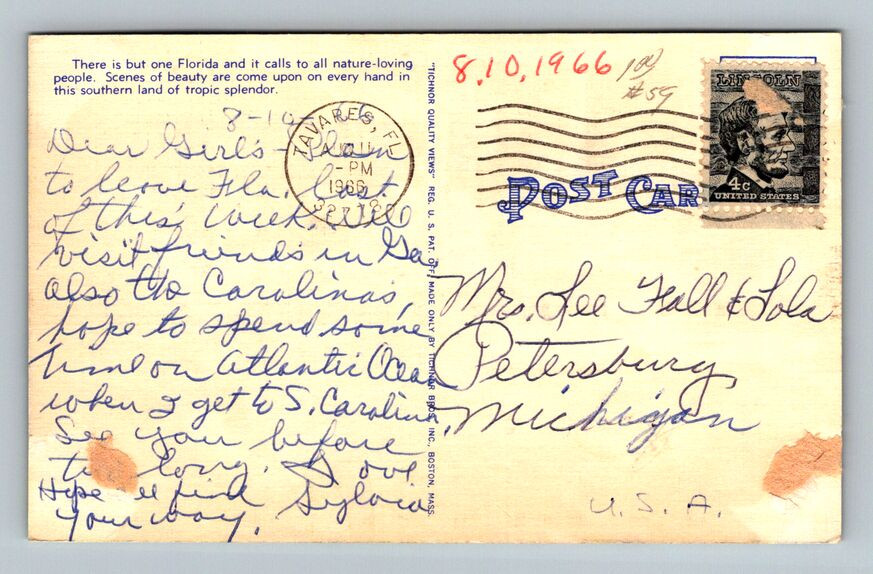 There is but one Florida and it calls to all nature-loving
people. Scenes of beauty are come upon on every hand in
this southern land of tropic splendor.
8-10-66
Dear Girls - Plan
to leave Fla. last
of this week. Will
visit friends in Ga.
also the Carolinas,
hope to spend some
time on Atlantic Ocean
when I get to S. Carolina,
See you before
too long. Love
Hope find Sylvia
your way.
TAVARES, FL
PM
1966
32778
"TICHNOR QUALITY VIEWS" REG. U. S. PAT. OFF. MADE ONLY BY TICHNOR BROS., INC., BOSTON, MASS.
8.10.1966
#59
LINCOLN
4c
UNITED STATES
POST CAR
Mrs. Lee Hall & Lola
Petersburg
Michigan
U. S. A.